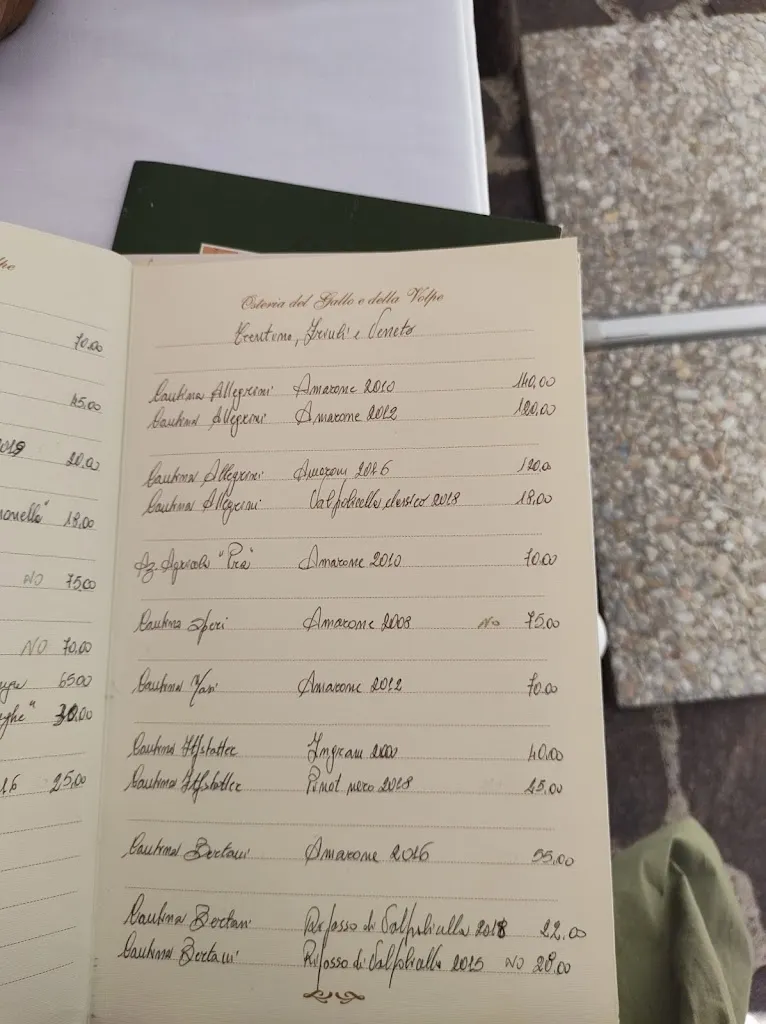 lpe
70.00
45.00
2019 20.00
onella" 18.00
NO 75.00
NO 70.00
65.00
ghe" 30.00
16 25.00
Osteria del Gallo e della Volpe
Trentino, Friuli e Veneto
Cantina Allegrini Amarone 2010 140,00
Cantina Allegrini Amarone 2012 120,00
Cantina Allegrini Amarone 2016 120,0
Cantina Allegrini Valpolicella classico 2018 18,00
Az. Agricola "Prà" Amarone 2010 70.00
Cantina Speri Amarone 2008 NO 75.00
Cantina Masi Amarone 2012 70.00
Cantina Hofstatter 40.00
Cantina Hofstatter Pinot nero 2018 25,00
Cantina Bertani Amarone 2016 55,00
Cantina Bertani Ripasso di Valpolicella 2018 22,00
Cantina Bertani Ripasso di Valpolicella 2015 NO 20.00